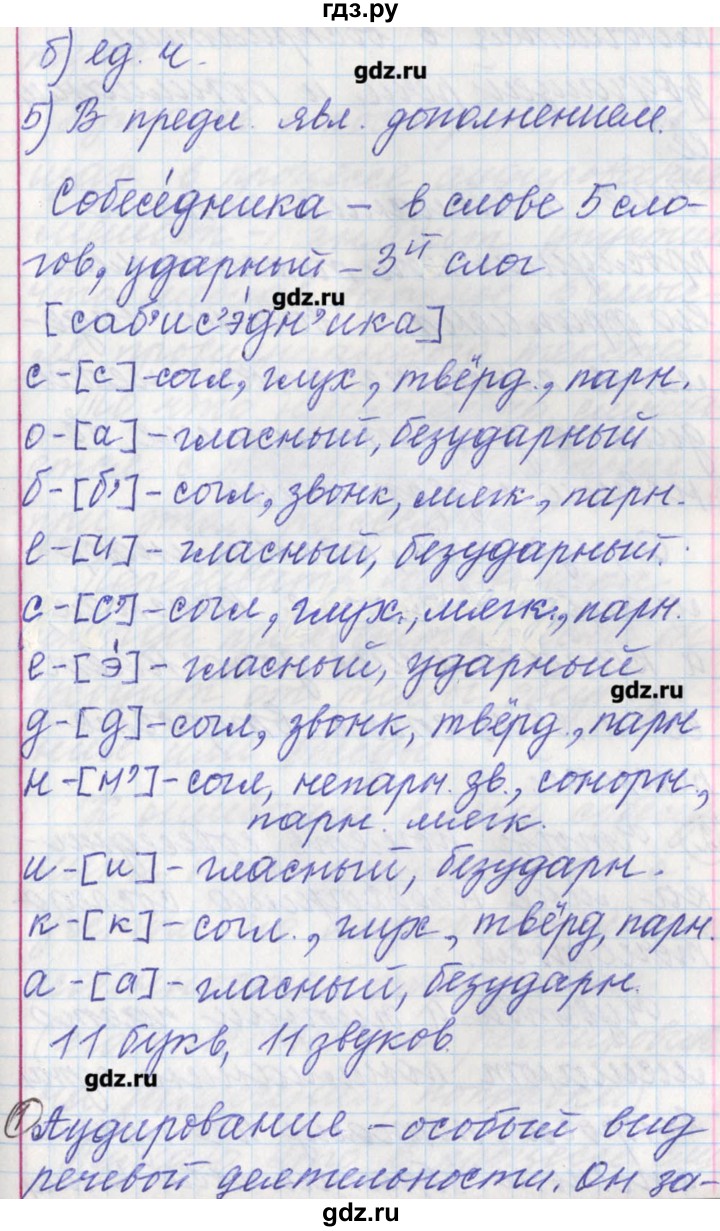 гдз.ру
б) ед. ч.
gdz.ru
5) В предл. явл. дополнением.
Собесе́дника – в слове 5 сло-
гов, ударный – 3й слог
gdz.ru
[саб'ис'э́дн'ика]
с-[с]-согл, глух, твёрд., парн.
о-[а]-гласный, безударный
б-[б']-согл, звонк, мягк, парн.
е-[и]-гласный, безударный.
с-[с']-согл, глух., мягк., парн.
е-[э́]-гласный, ударный
gdz.ru
д-[д]-согл, звонк, твёрд., парн
н-[н']-согл, непарн. зв., сонорн.,
парн. мягк.
и-[и]-гласный, безударн.
к-[к]-согл., глух, твёрд, парн.
а-[а]-гласный, безударн.
11 букв, 11 звуков.
gdz.ru
1 Аудирование – особый вид
речевой деятельности. Он за-
gdz.ru